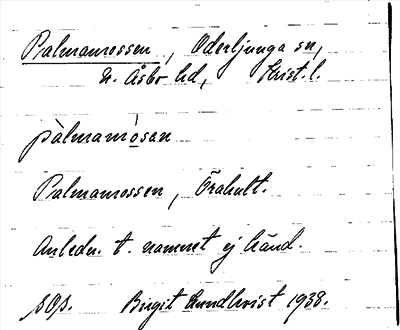 Palmamossen, Oderljunga sn,
N. Åsbo hd, Krist. l.
pàlmamósan
Palmamossen, Trahult.
Anledn. t. namnet ej känd.
Birgit Lundkvist 1938.